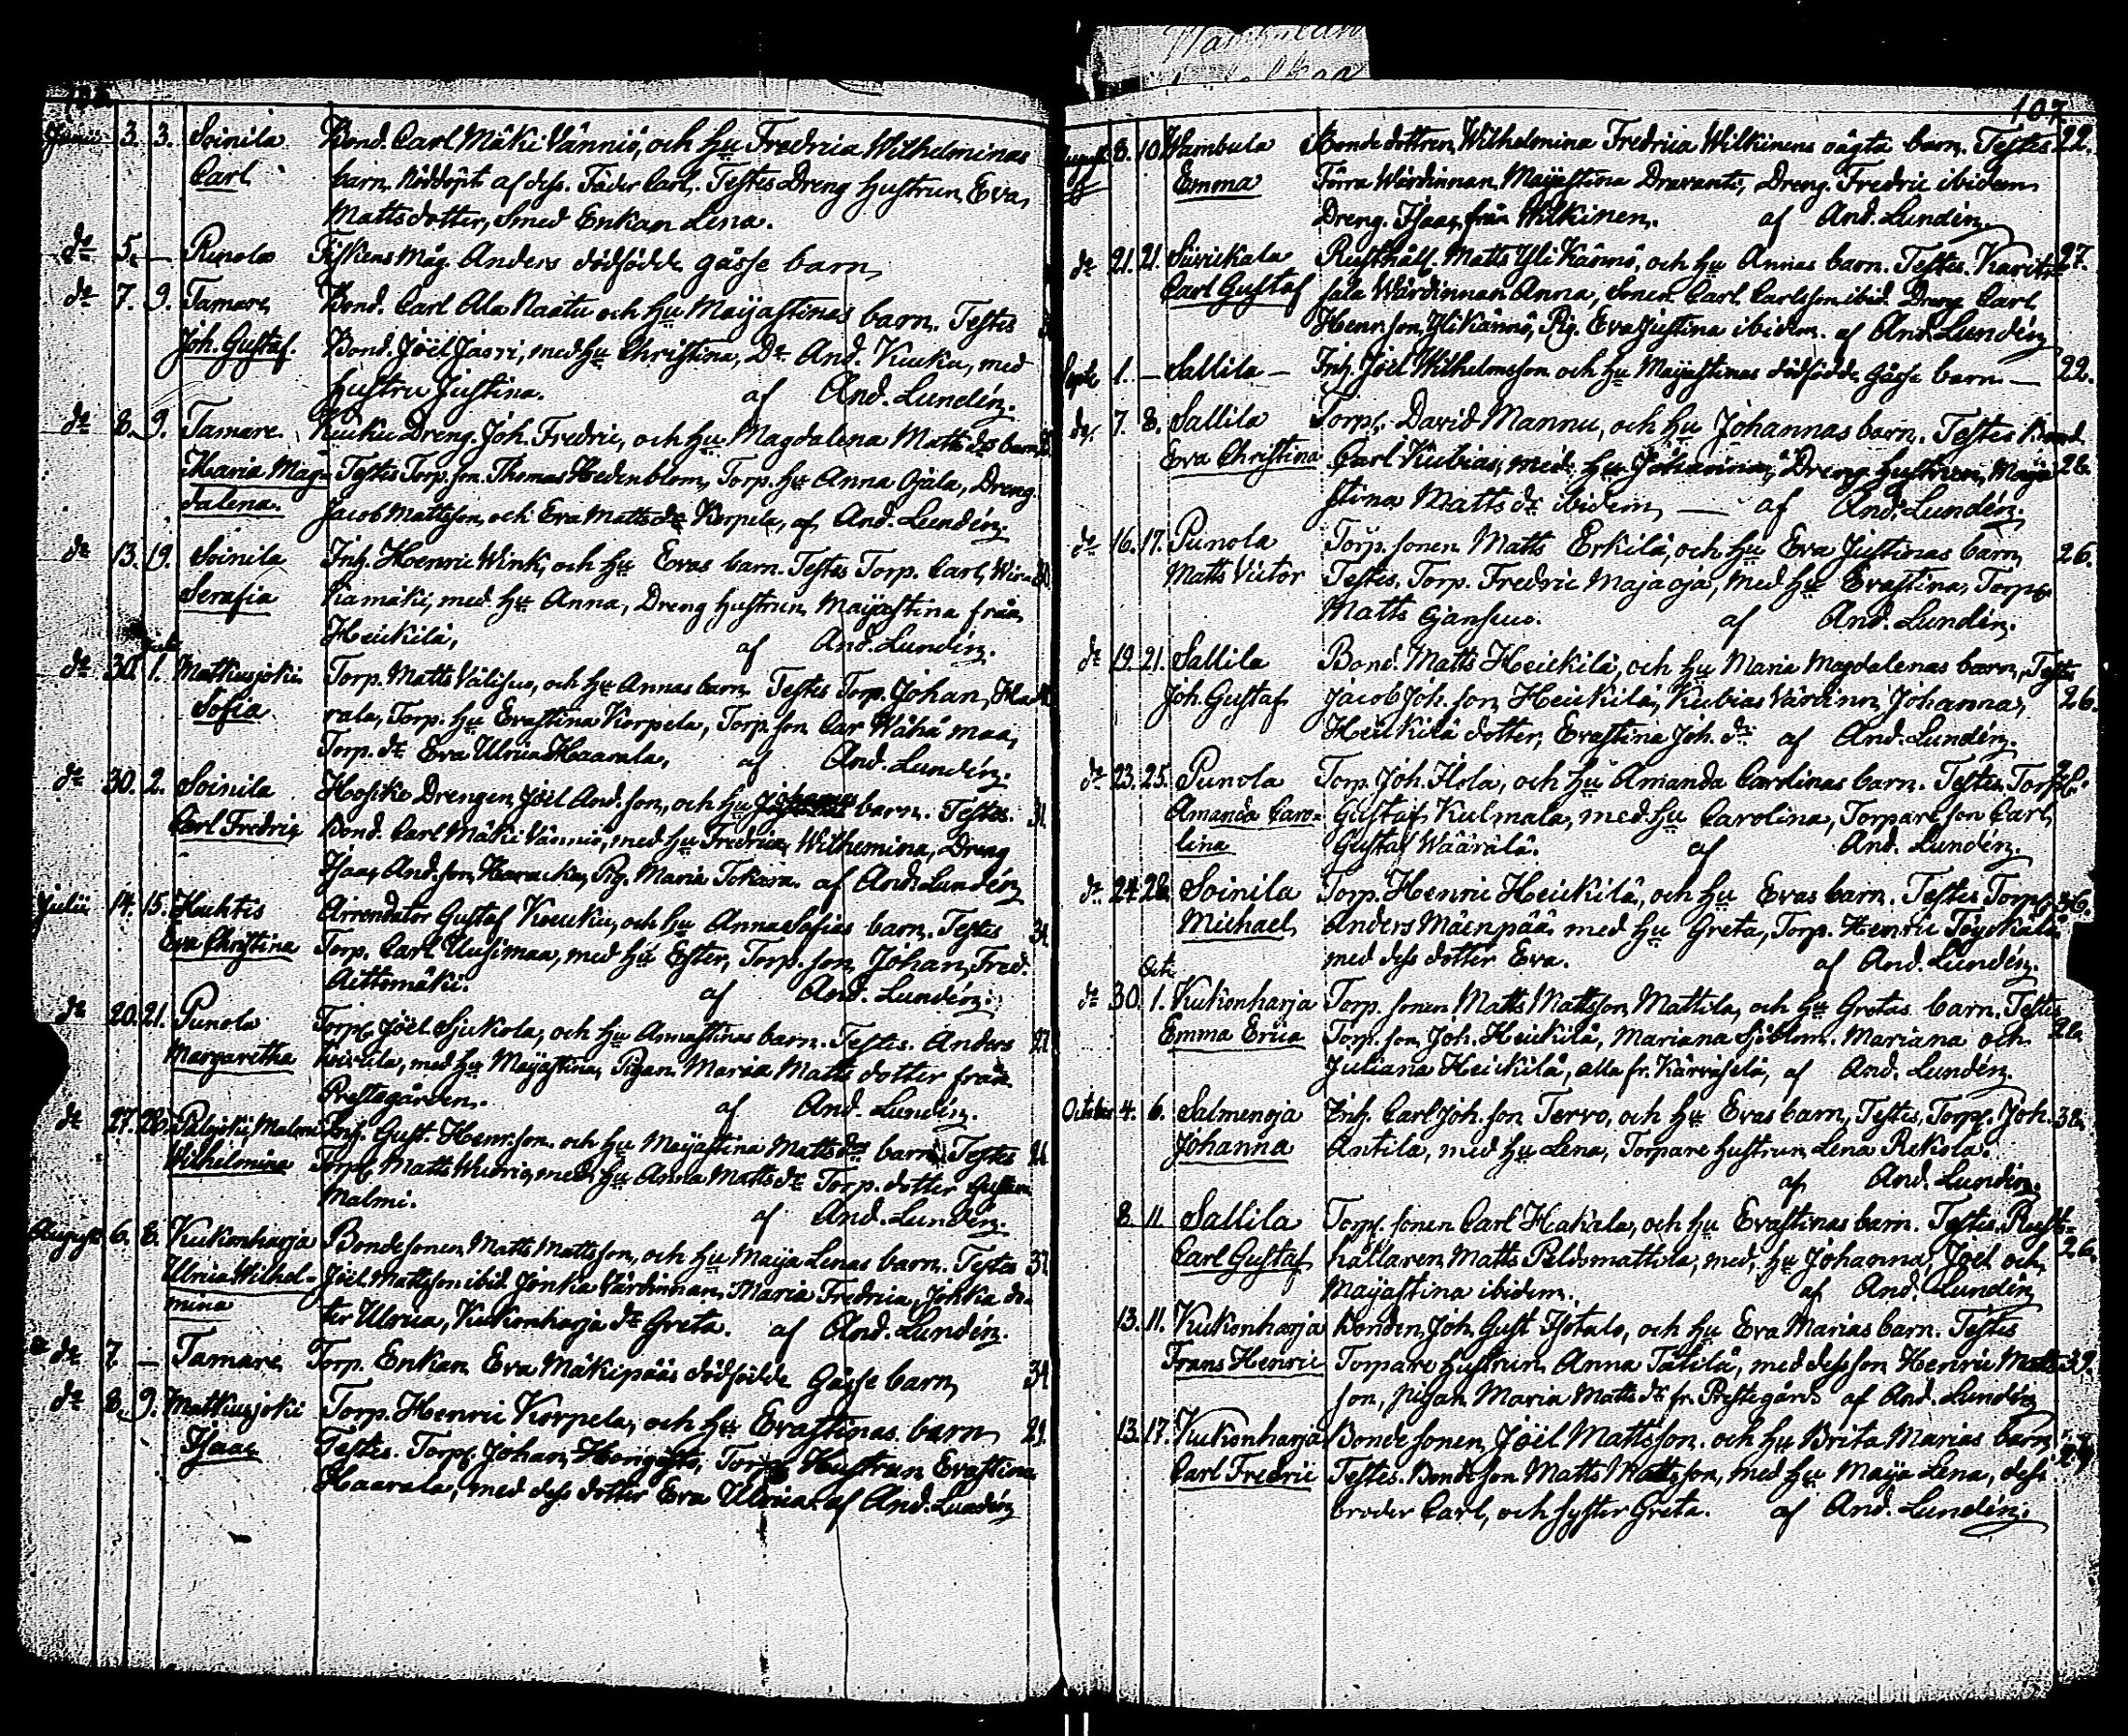 Junii 3. 3. Soinila Bond. Carl Mäki Vänniö, och hu Fredrica Wilhelminas
Carl barn. Nöddöpt af dess Fader Carl. Testes Dreng hustrun Eva
Mattsdotter, Smed Enkan Lena.
do 5. — Punola Anders dödfödde gåsse barn
do 7. 9. Tamare Bond. Carl Ala Naatu och hu Majastinas barn. Testes
Joh. Gustaf. Bond. Joël Jasri, med hu Christina, Do And. Kuuku, med
hustru Justina. af And. Lundén.
do 8. 9. Tamare Kuuku Dreng. Joh. Fredric, och hu Magdalena Matts do barn
Maria Mag- Testes Torp. son Thomas Hedenblom, Torp. hu Anna Ojala, Dreng
dalena. Jacob Mattsson, och Eva Matts do Korpela, af And. Lundén.
do 13. 19. Soinila Inh. Henric Wink, och hu Evas barn. Testes Torp. Carl Wir-
Serafia kamäki, med hu Anna, Dreng hustrun Majastina från
Heickilä, af And. Lundén.
do 30. 1. Matkusjoki Torp. Matts Välisuo, och hu Annas barn Testes Torp. Johan Haa
Sofia rala, Torp. hu Evastina Korpela, Torp. son Car Wähä maa,
Torp. do Eva Ulrica Haarala, af And. Lundén.
do 30. 2. Soinila Drengen Joël And. son, och hu barn. Testes. 31.
Carl Fredric Bond. Carl Mäki Vänniö, med hu Fredrica Wilhemina, Dreng
Isaac And. son Pig. Maria Tokara. af And. Lundén
Julii 14. 15. Huhtis Arrendator Gustaf Kouku, och hu Anna Sofias barn. Testes
Eva Christina Torp. Carl Uusimaa, med hu Ester, Torp. son Johan Fred.
Aittomäki. af And. Lundén.
do 20. 21. Punola Torp. Joël Sjukola, och hu Annastinas barn. Testes. Anders
Margaretha med hu Majastina, Pigan Maria Matts dotter från
Prestegården. af And. Lundén.
do 27. 28. Malmi Inh. Gust. Henr. son och hu Majastina Matts drs barn Testes
Wilhelmina Torp. Matts med hu Anna Matts do Torp. dotter
Malmi. af And. Lundén.
August 6. 8. Kukonharja Bondesonen Matts Mattsson, och hu Maija Lenas barn. Testes
Ulrica Wilhel- Joël Mattsson ibid. Jonka Värdinnan Maria Fredrica, Jonka do-
mina ter Ulrica, Kukonharja do Greta. af And. Lundén.
do 7. — Tamare Torp. Enkan Eva Mäkipääs dödfödde Gåsse barn
do 8. 9. Matkusjoki Torp. Henric Korpela, och hu Evastinas barn 29.
Isaac Testes. Torp. Johan Torp. Hustrun Evastina
Haarala, med dess dotter Eva Ulrica af And. Lundén
107
August 8. 10. Hambula Bonde dottren Wilhelmina Fredrica Wilkinens oägta barn. Testes 22.
Emma Förra Wärdinnan Majastina Dravanti, Dreng. Fredric ibidem
Dreng. Isaac från Wilkinen. af And. Lundén
do 21. 21. Suurikala Rusthåll. Matts Yli Kännö, och hu Annas barn. Testes. Karit- 27.
Carl Gustaf sala Wärdinnan Anna, Sonen Carl Carlsson ibid. Dreng Carl
Henr. son Yli Kännö, Pig. Eva Justina ibidem. af And. Lundén
Septb 1. — Sallila — Inh. Joël Wilhelmsson och hu Majastinas dödfödde Gåsse barn — 22.
7. 8. Sallila Torp. David Mannu, och hu Johannas barn. Testes Bond.
Eva Christina Carl Kubias, med hu Johanna, Dreng hustrun Maja 26.
stina Matts do ibidem — af And. Lundén.
do 16. 17. Punola Torp. sonen Matts Erkilä, och hu Eva Justinas barn 26.
Matts Victor Testes, Torp. Fredric Majaoja, med hu Evastina, Torp.
Matts Ojansuu. af And. Lundén.
do 19. 21. Sallila Bond. Matts Heickilä, och hu Maria Magdalenas barn, Testes
Joh. Gustaf Jacob Joh. son Heickilä, Kubias Värdinn Johanna, 26.
Heickilä dotter, Evastina Joh. dr af And. Lundén.
do 23. 25. Punola Torp. Joh. Hola, och hu Amanda Carolinas barn. Testes Torp.
Amanda Caro- Gustaf Kulmala, med hu Carolina, Torpare son Carl
lina Gustaf Wäärälä. af And. Lundén.
do 24. 28. Soinila Torp. Henric Heickilä, och hu Evas barn. Testes Torp. 36.
Michael Anders Mäenpää, med hu Greta, Torp. Henric
med dess dotter Eva. af And. Lundén.
Octb
do 30. 1. Kukonharja Torp. sonen Matts Mattsson Mattila, och hu Gretas barn. Testes
Emma Erica Torp. son Joh. Heickilä, Mariana Sjöblom. Mariana och 26.
Juliana Heickilä, alla fr. Kärväselä, af And. Lundén.
October 4. 6. Salmenoja Inh. Carl Joh. son Tervo, och hu Evas barn, Testes, Torp. Joh. 38.
Johanna Antila, med hu Lena, Torpare hustrun Lena Rekola.
af And. Lundén.
8. 11. Sallila Torp. sonen Carl Hakala, och hu Evastinas barn. Testes Rust-
Carl Gustaf hållaren Matts Peldomattila, med hu Johanna, Joël och 26.
Majastina ibidem. af And. Lundén
13. 11. Kukonharja Bonden Joh. Gust Isotalo, och hu Eva Marias barn. Testes
Frans Henric Torpare hustrun Anna Tätilä, med dess son Henric Matts 39.
son, pigan Maria Matts dr fr. Prestegård af And. Lundén
13. 17. Kukonharja Bonde sonen Joël Mattsson. och hu Brita Marias barn
Carl Fredric Testes. Bondeson Matts Mattsson, med hu Maija Lena, dess
broder Carl, och syster Greta. af And. Lundén.